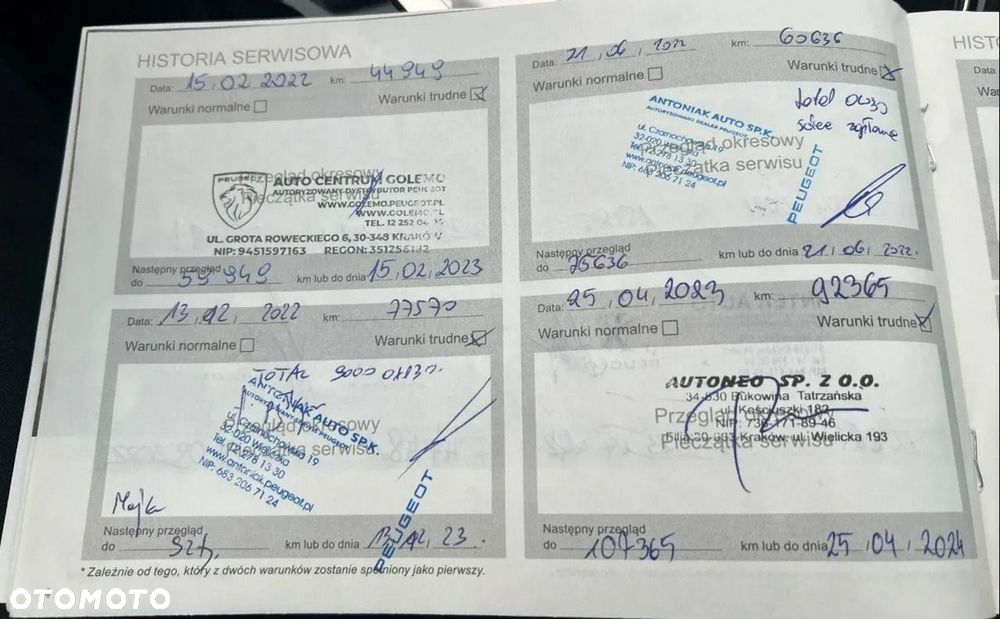 HISTORIA SERWISOWA
Data: 15.02.2022 km: 44949
Warunki normalne
Warunki trudne
Przegląd okresowy
Pieczątka serwisu
PEUGEOT
AUTO CENTRUM GOLEMO
AUTORYZOWANY DYSTRYBUTOR PEUGEOT
WWW.GOLEMO.PEUGEOT.PL
WWW.GOLEMO.PL
TEL. 12 252
UL. GROTA ROWECKIEGO 6, 30-348 KRAKÓW
NIP: 9451597163 REGON:
Następny przegląd
do 59949 km lub do dnia 15.02.2023
Data: 21.06.2022 km: 60636
Warunki normalne
Warunki trudne
ANTONIAK AUTO SP.K.
AUTORYZOWANY DEALER PEUGEOT
ul. Czarnochowska 19
32-020 Wieliczka
Tel. 12 278 13 30
www.antoniak.peugeot.pl
NIP: 683 206 71 24
Przegląd okresowy
Pieczątka serwisu
PEUGEOT
Następny przegląd
do 75636 km lub do dnia 21.06.2022.
Data: 13.12.2022 km: 77570
Warunki normalne
Warunki trudne
TOTAL 9000
ANTONIAK AUTO SP.K.
AUTORYZOWANY DEALER PEUGEOT
ul. Czarnochowska 19
32-020 Wieliczka
Tel. 12 278 13 30
www.antoniak.peugeot.pl
NIP: 683 206 71 24
Przegląd okresowy
Pieczątka serwisu
PEUGEOT
Następny przegląd
do km lub do dnia 13.12.23.
Data: 25.04.2023 km: 92365
Warunki normalne
Warunki trudne
AUTONEO SP. Z O.O.
34-530 Bukowina Tatrzańska
ul. Kościuszki 182
NIP: 736-171-89-46
Kraków, ul. Wielicka 193
Przegląd okresowy
Pieczątka serwisu
Następny przegląd
do 107365 km lub do dnia 25.04.2024
* Zależnie od tego, który z dwóch warunków zostanie spełniony jako pierwszy.
HIST
Data:
War
OTOMOTO